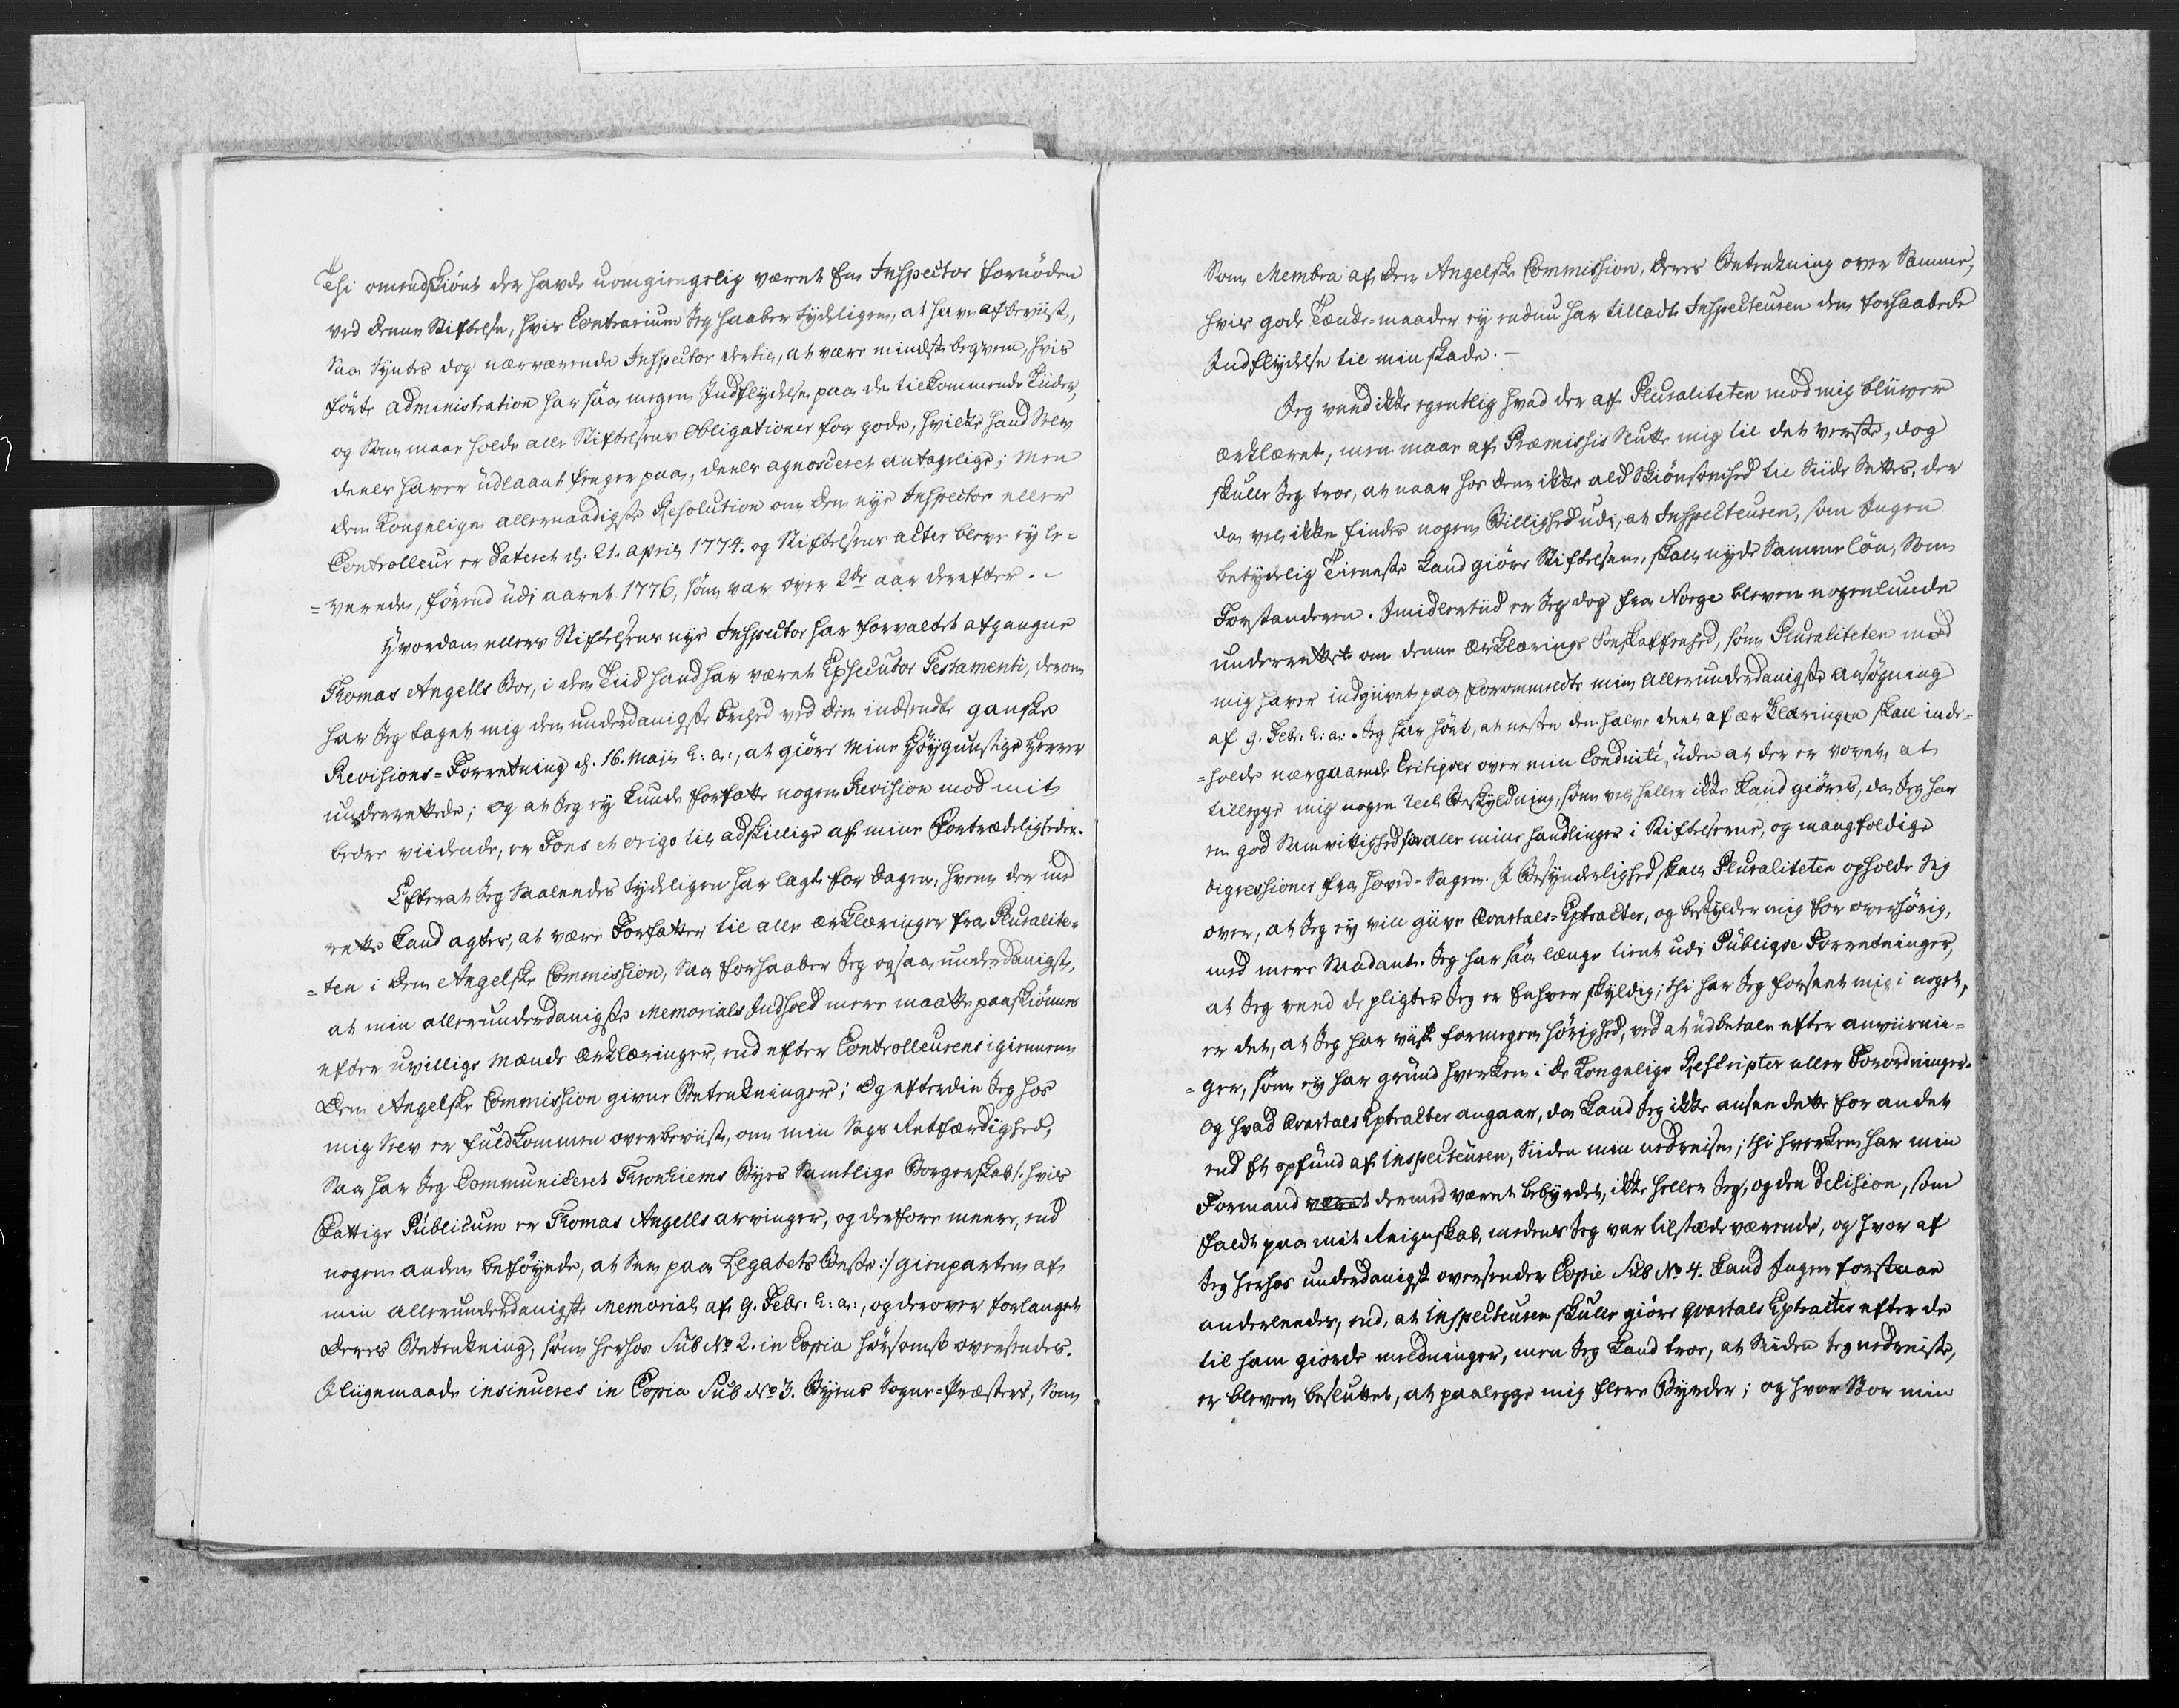 Thi omendskiönt der havde uomgiengelig været En Inspector fornöden
ved denne Stiftelse, hvis Contrarium Jeg haaber tydeligen, at have afbeviist,
Saa Synes dog nærværende Inspector dertil, at være mindst beqvem, hvis
förte administration har saa megen Indflydelse paa de tilkommende Tiider,
og Som maae holde alle Stiftelsens Obligationer for gode, hvilke hand Selv
deels haver udlaant Penger paa, deels agnosceret antagelige; Men
den Kongelige allernaadigste Resolution om den nye Inspector eller
Controlleur er dateret d: 21. april 1774. og Stiftelsens acter bleve ey le-
=verede, förend udi aaret 1776, som var over 2de aar derefter. -
Hvordan ellers Stiftelsens nye Inspector har forvaltet afgangne
Thomas Angells Boe, i den Tiid hand har været Executor Testamenti, derom
har Jeg taget mig den underdanigste Frihed ved den indsendte ganske
Revisions=Forretning d. 16. Maji h: a:, at giöre Mine Höygunstige Herrer
underrettede; og at Jeg ey kunde forfatte nogen Revision mod mit
bedre viidende, er Fons et origo til adskillige af mine Fortrædeligheder.
Efterat Jeg Saaledes tydeligen har lagt for Dagen, hvem der med
rette kand agtes, at være Forfatter til alle Erklæringer fra Pluralite-
=ten i den Angelske Commission, Saa forhaaber Jeg ogsaa underdanigst,
at min allerunderdanigste Memorials Indhold mere maatte paaskiönnes
efter uvillige Mænds Erklæringer, end efter Controlleurens igiennem
Den Angelske Commission givne Betenkninger; Og efterdie Jeg hos
mig Selv er fuldkommen overbeviist, om min Sags Retfærdighed,
Saa har Jeg Communiceret Tronhiems Byes Samtlige Borgerskab /: hvis
Fattige Publicum er Thomas Angells arvinger, og derfore meere, end
nogen anden beföyede, at See paa Legatets Beste :/ gienparten af
min allerunderdanigste Memorial af 9. Febr: h: a:, og derover forlanget
Deres Betenkning, som herhos Sub No 2. in Copia hörsomst oversendes.
I liigemaade insinueres in Copia Sub No 3. Byens Sogne=Præsters, Som
Som Membra af den Angelske Commission, deres Betenkning over Samme,
hvis gode Tænke=maader ey endnu har tilladt Inspecteuren den forhaabede
Indflydelse til min skade. -
Jeg veed ikke egentlig hvad der af Pluraliteten mod mig bliver
erklæret, men maae af Præmissis Slutte mig til det verste, dog
skulle Jeg troe, at naar hos dem ikke ald Skiönsomhed til Siide Settes, der
da vel ikke findes nogen Billighed udi, at Inspecteuren, som Ingen
betydelig Tieneste kand giöre Stiftelsen, skal nyde Samme lön, Som
Forstanderen. Imidlertiid er Jeg dog fra Norge bleven nogenlunde
underrettet om denne Erklærings beskaffenhed, som Pluraliteten mod
mig haver indgivet paa forommeldte min allerunderdanigste ansögning
af 9. Febr: h: a:. Jeg har hört, at neste den halve deel af erklæringen skall inde-
=holde nærgaaende Critiqver over min Conduite, uden at der er vovet, at
tillegge mig nogen reel Beskyldning, som vel heller ikke kand giöres, da Jeg har
en god Samvittighed for alle mine handlinger i Stiftelserne, og mangfoldige
degressioner fra hoved-Sagen. I Besynderlighed skal Pluraliteten opholde Sig
over, at Jeg ey vill give Qvartals=Extracter, og beskylder mig for overhörig,
med mere Saadant. Jeg har saa længe tient udi Publiqve Forretninger,
at Jeg veed de pligter Jeg er Enhver skyldig; thi har Jeg forseet mig i noget,
er det, at Jeg har viist formegen hörighed, ved at udbetale efter anviisnin-
=ger, som ey har grund hverken i de Kongelige Rescripter eller Forordninger.
Og hvad Qvartals Extracter angaar, da kand Jeg ikke ansee dette for andet
end Et opfund af Inspecteuren, Siiden min nedreise; thi hverken har min
Formand været dermed været bebyrdet, ikke heller Jeg, og den decision, som
faldt paa mit Reignskab, medens Jeg var tilstæde værende, og hvor af
Jeg herhos underdanigst oversender Copie Sub No 4. kand Ingen forstaae
anderleedes, end, at Inspecteuren skulle giöre Qvartals Extracter efter de
til ham giorde meldninger, men Jeg kand troe, at Siiden Jeg nedreiste,
er bleven besluttet, at paalegge mig flere Byrder; og hvor Stor min